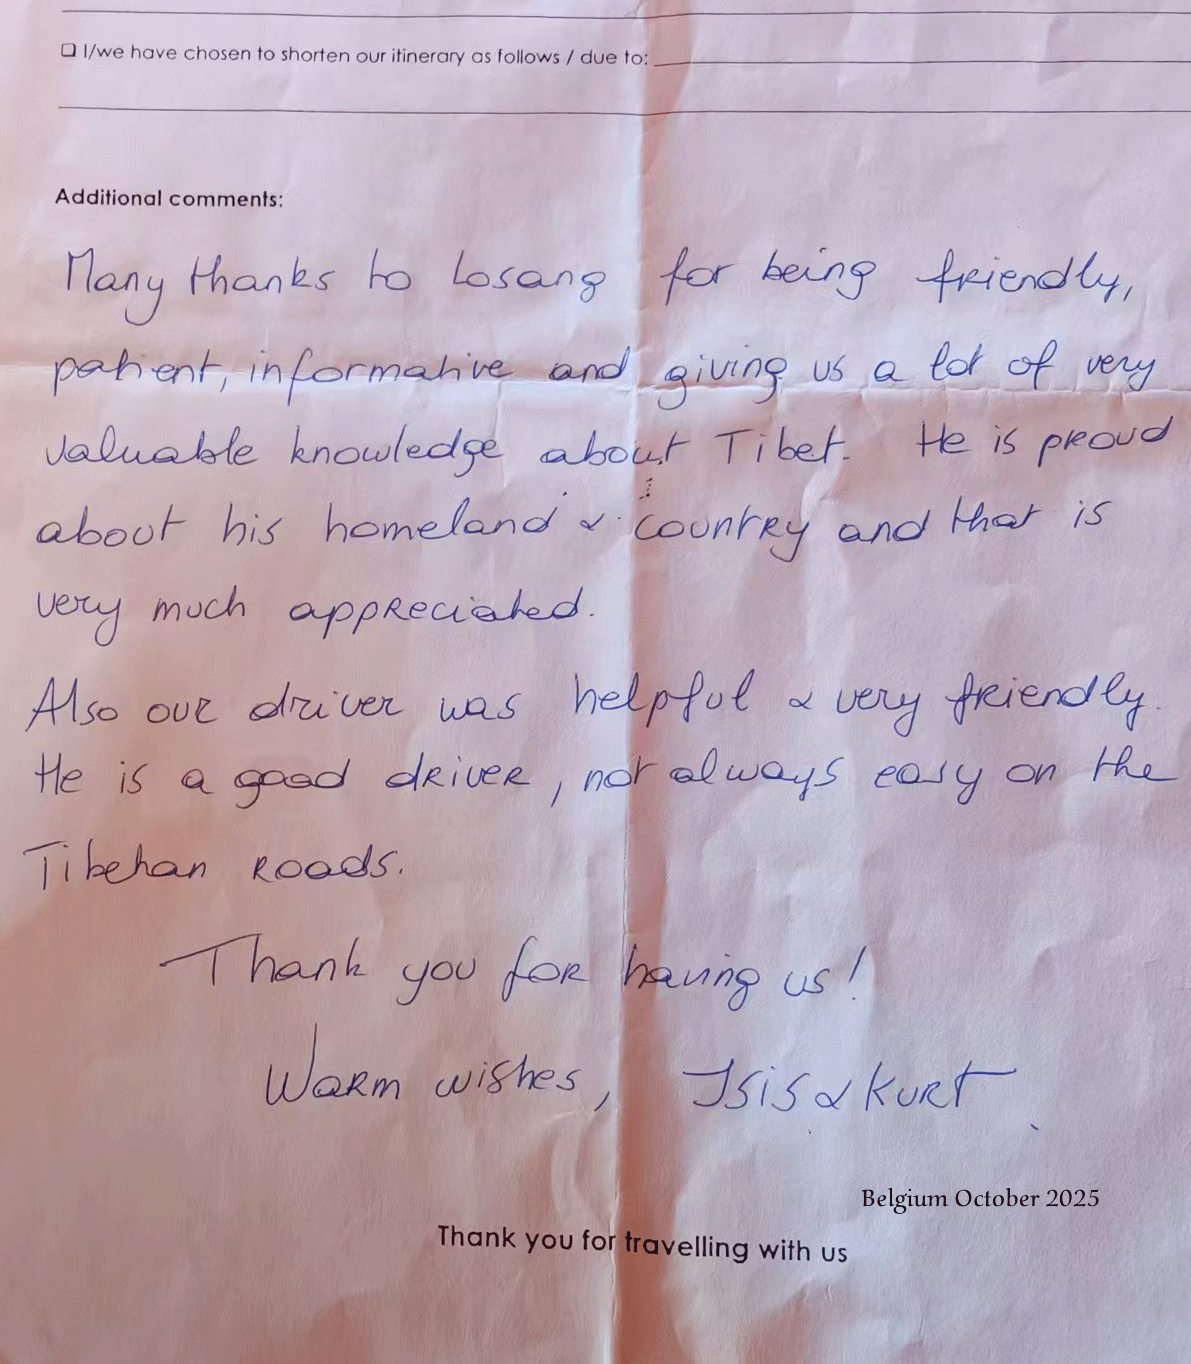 ❏ I/we have chosen to shorten our itinerary as follows / due to:
Additional comments:
Many thanks to Losang for being friendly,
patient, informative and giving us a lot of very
valuable knowledge about Tibet. He is proud
about his homeland & country and that is
very much appreciated.
Also our driver was helpful & very friendly.
He is a good driver, not always easy on the
Tibetan Roads.
Thank you for having us!
Warm wishes, Isis & Kurt
Belgium October 2025
Thank you for travelling with us